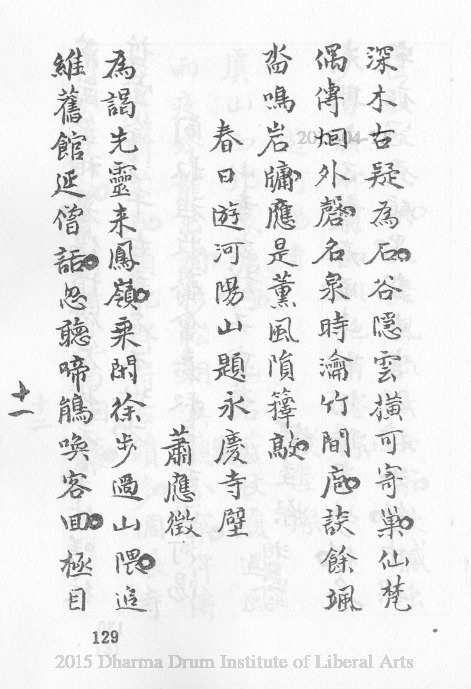 深木古疑為石谷隱雲橫可寄巢仙梵
偶傳烟外磬名泉時瀹竹間庖談餘颯
沓鳴岩牖應是薰風隕籜敲
春日遊河陽山題永慶寺壁
蕭應徵
為謁先靈来鳳嶺乘閒徐步過山隈追
維舊館延僧話忽聽啼鵑喚客回極目
十一
129
2015 Dharma Drum Institute of Liberal Arts